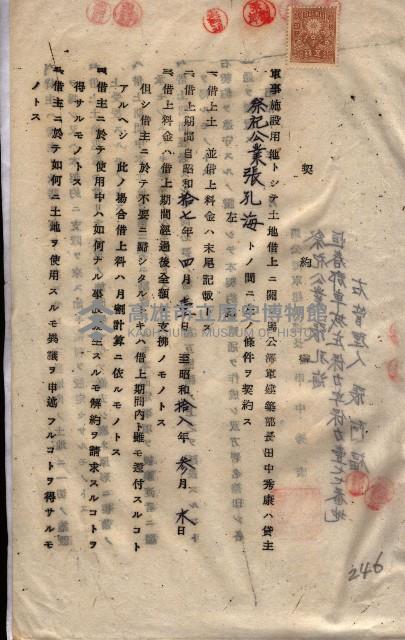 契約
軍事施設用地トシテ土地借上ニ關シ馬公海軍建築部長田中秀康ハ貸主
祭祀公業張孔海トノ間ニ左ノ條件ヲ契約ス
一、借上土地並借上料金ハ末尾記載ノ通トス
一、借上期間自昭和拾七年四月壱日至昭和拾八年参月末日
一、借上料金ハ借上期間經過後全額ヲ支拂フモノトス
但シ借主ニ於テ不要ニ歸シタルトキハ借上期間内ト雖モ還付スルコト
アルヘシ此ノ場合借上料ハ月割計算ニ依ルモノトス
一、借主ニ於テ使用中ハ如何ナル事故發生スルモ解約ヲ請求スルコトヲ
得サルモノトス
一、借主ニ於テ如何ニ土地ヲ使用スルモ異議ヲ申述フルコトヲ得サルモ
ノトス
246
高雄市立歷史博物館
KAOHSIUNG MUSEUM OF HISTORY